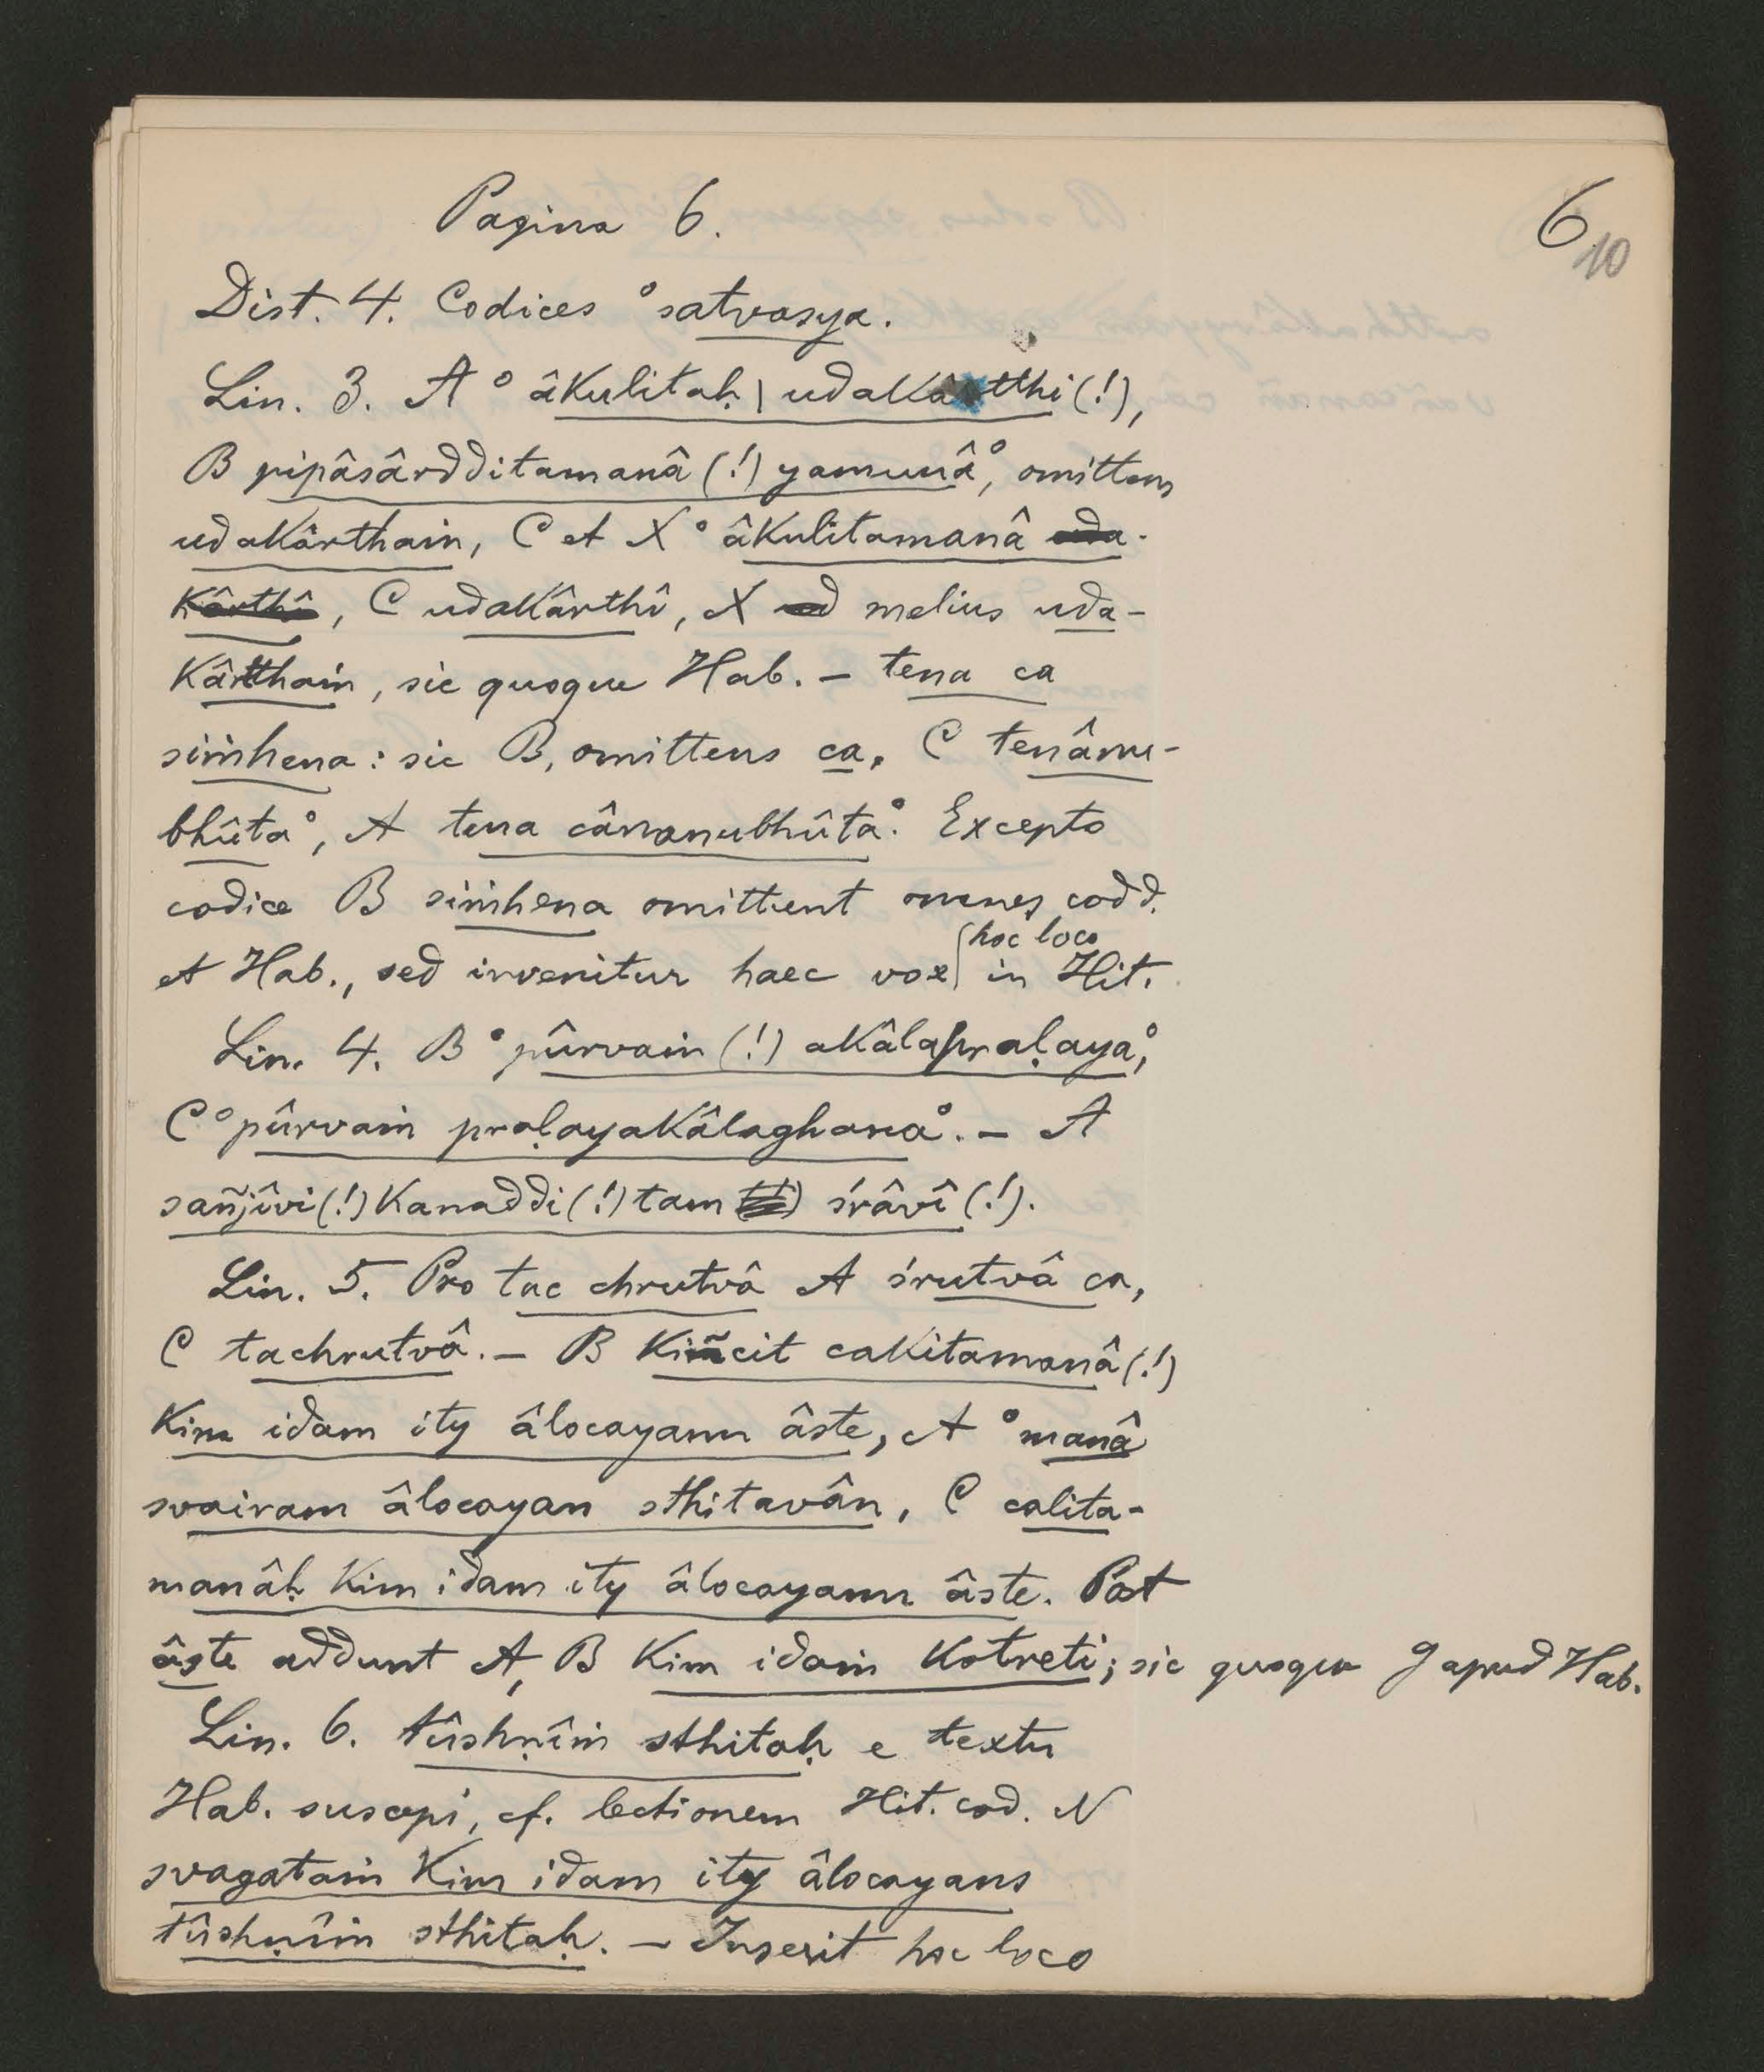 Pagina 6.
6
10
Dist. 4. Codices °satvasya.
Lin. 3. A °âkulitaḥ | udakâtthi (!),
B pipâsârdditamanâ (!) yamunâ°, omittens
udakârthaṁ, C et X °âkulitamanâ uda-
kârthî, C udakârthî, X ud melius uda-
kârtthaṁ, sic quoque Hab. — tena ca
siṁhena: sic B, omittens ca, C tenânu-
bhûta°, A tena cânanubhûta°. Excepto
codice B siṁhena omittunt omnes codd.
et Hab., sed invenitur haec vox hoc loco in Hit.
Lin. 4. B °pûrvaṁ (!) akâlapraḷaya°,
C °pûrvaṁ praḷayakâlaghana°. — A
sañjîvi (!) kanaddi (!) tam śrâvî (!).
Lin. 5. Pro tac chrutvâ A śrutvâ ca,
C tachrutvâ. — B kiñcit cakitamanâ (!)
kim idam ity âlocayann âste, A °manâ
svairam âlocayan sthitavân, C calita-
manâḥ kim idam ity âlocayann âste. Post
âste addunt A, B kim idaṁ kotreti; sic quoque g apud Hab.
Lin. 6. tûshṇîṁ sthitaḥ e textu
Hab. suscepi, cf. lectionem Hit. cod. N
svagataṁ kim idam ity âlocayans
tûshṇîṁ sthitaḥ. — Inserit hoc loco